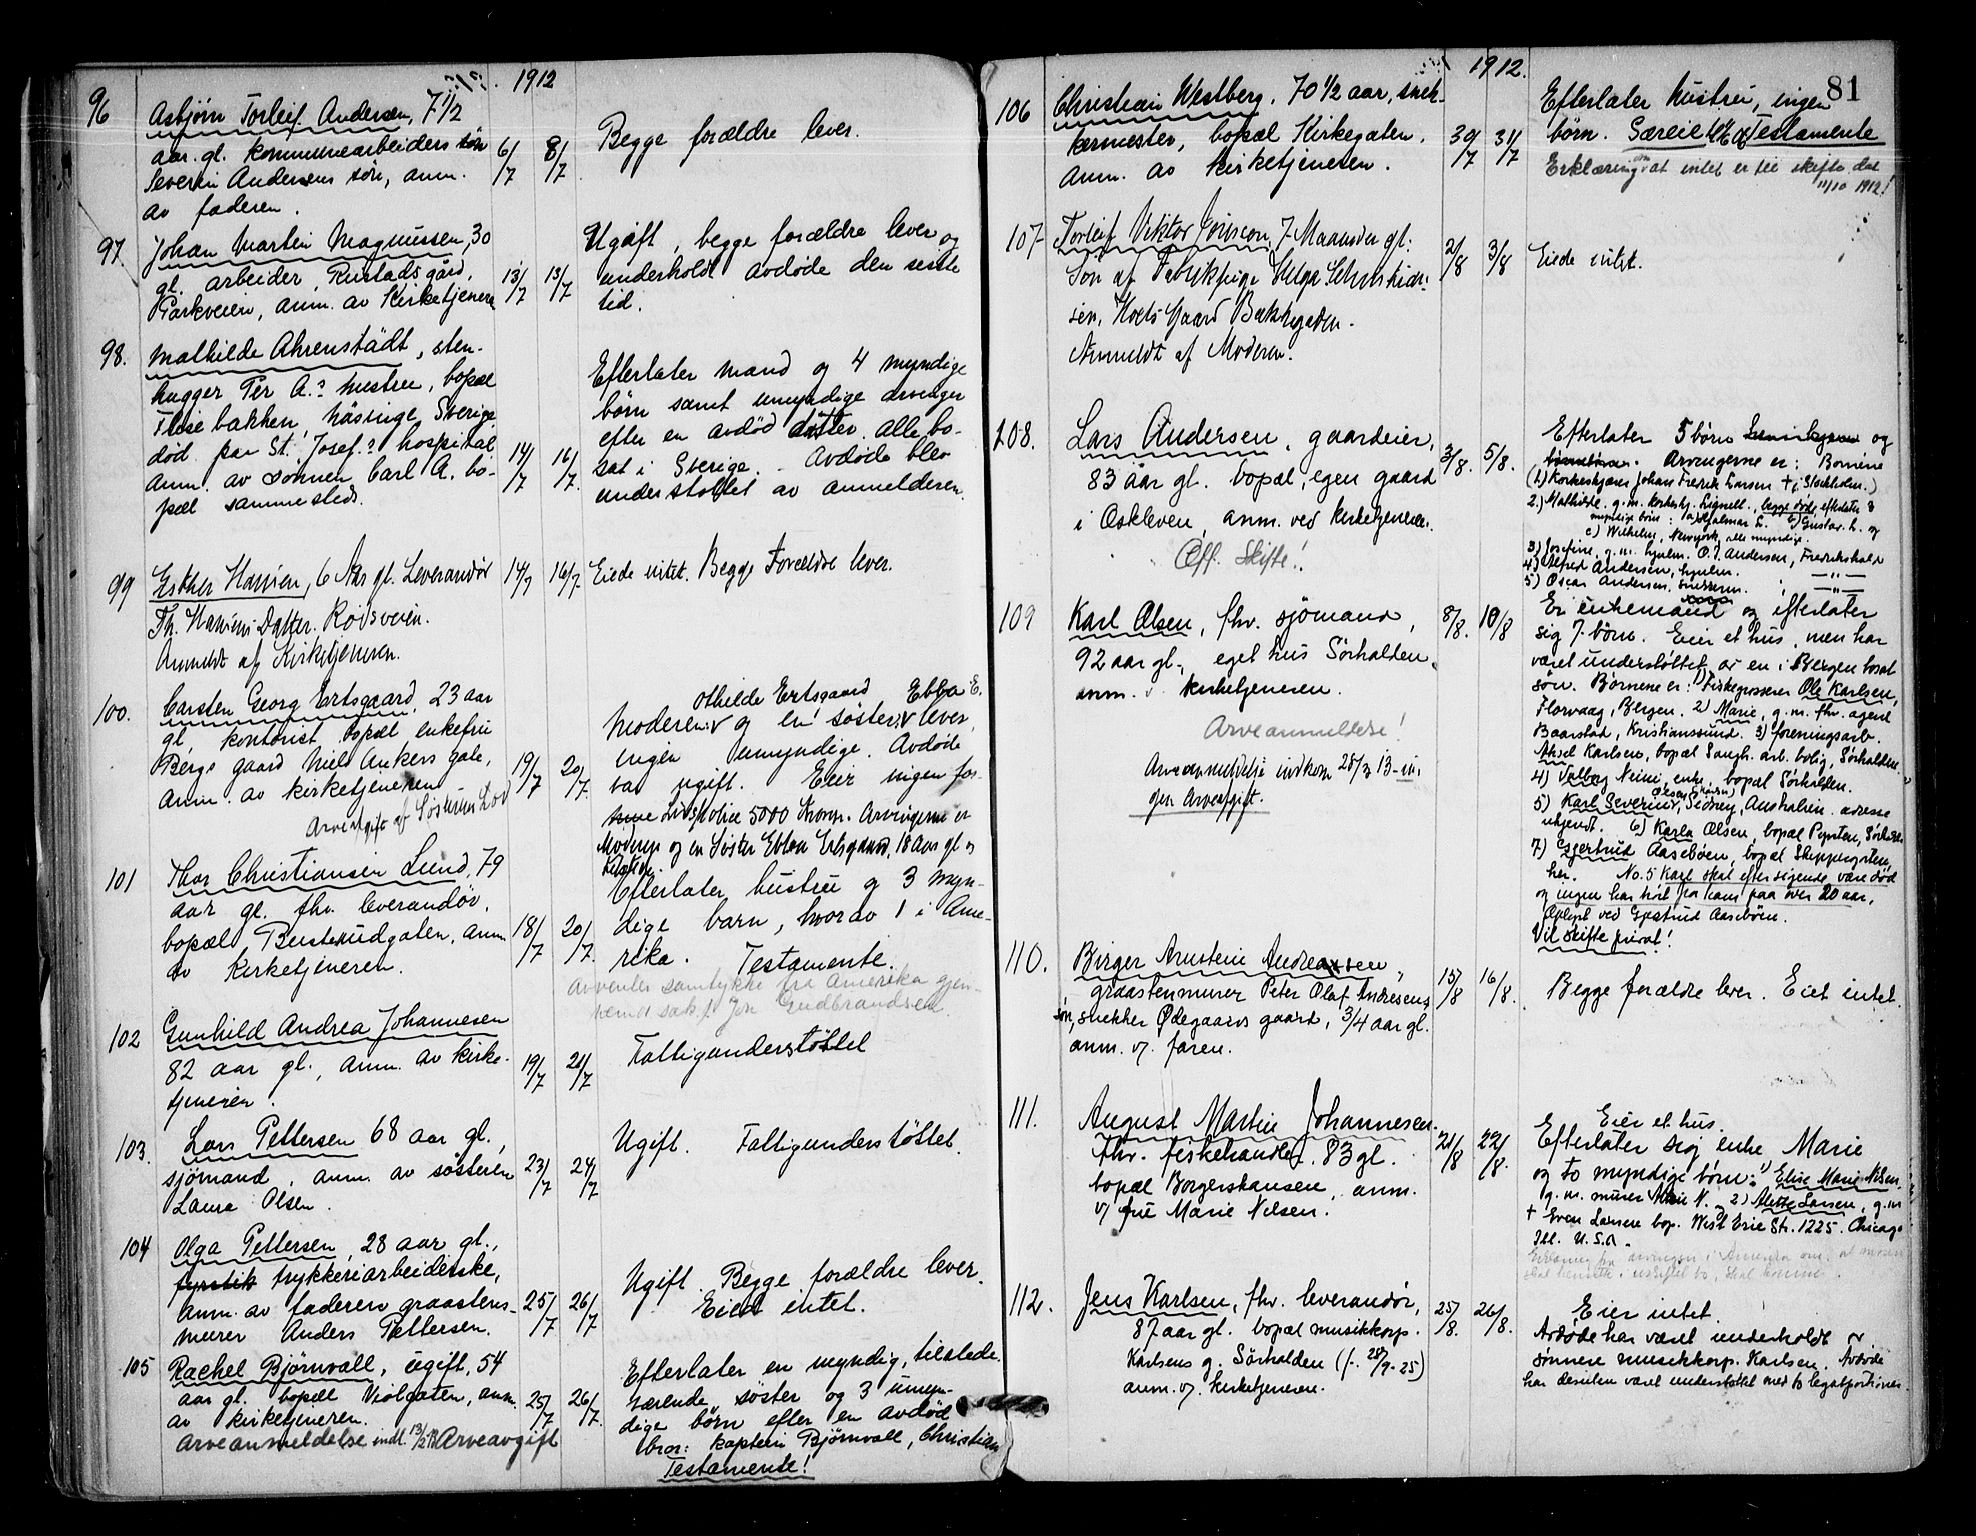 1912
96 Asbjørn Torleif Andersen, 7 1/2
aar. gl. kommunearbeiders søn
Severin Andersens søn, anm.
av faderen.
6/7 8/7
Begge forældre lever.
97. Johan Martin Magnussen, 30
gl. arbeider, Rustadsgård,
Parkveien, anm. av Kirketjener
13/7 13/7
Ugift, begge forældre lever og
underholdt avdøde den siste
tid.
98. Mathilde Ahrenstädt, sten-
hugger Per A.s hustru, bopæl
bakken, Sverige
død paa St. Josefs hospital
anm. av sønnen Carl A. bo-
pæl sammesteds.
14/7 16/7.
Efterlater mand og 4 myndige
børn samt umyndige arvinger
efter en avdød datter. alle bo-
sat i Sverige. - Avdøde blev
understøttet av anmelderen.
99 Esther Hansen, 6 Aar gl. Leverandør
Th. Hansens Datter. Rødsveien.
Anmeldt af Kirketjeneren.
14/7 16/7.
Eiede intet. Begge Forældre lever.
100. Carsten Georg Ertsgaard, 23 aar
gl. kontorist, bopæl enkefru
Bergs gaard Niels Ankers gate,
anm. av kirketjeneren
Arveafgift af Søsterens Lod
19/7 20/7.
Othilde Ertsgaard Ebba E.
Moderen v og en søster v lever,
ingen umyndige. Avdøde
var ugift. Eier ingen for-
mue Livspolice 5000 Kroner. Arvingerne er
Moderen og en Søster Ebba Ertsgaard, 18 Aar gl og
101 Thor Christiansen Lund, 79
aar gl. fhv. leverandør,
bopæl Busterudgaten, anm
av Kirketjeneren.
18/7 20/7.
Efterlater hustru og 3 myn-
dige barn, hvorav 1 i Ame-
rika. Testamente.
avventer samtykke fra Amerika gjen-
Gudbrandsen
102 Gunhild Andrea Johannesen
82 aar gl., anm. av kirke-
tjeneren.
19/7 21/7
Fattigunderstøttet
103. Lars Pettersen 68 aar gl.,
sjømand, anm. av søsteren
Laura Olsen.
23/7 24/7
Ugift. Fattigunderstøttet.
104 Olga Pettersen, 28 aar gl.,
fyrstik trykkeriarbeiderske,
anm. av faderen graastens-
murer Anders Pettersen.
25/7 26/7
Ugift. Begge forældre lever.
Eiet intet.
105 Rachel Bjørnvall, ugift, 54
aar gl. bopæl Violgaten, anm.
av kirketjeneren.
Arveanmeldelse indl. 13/2 13 Arveavgift
25/7 26/7.
Efterlater en myndig, tilstede-
værende, søster og 3 umyn-
dige børn efter en avdød
bror: kaptein Bjørnvall, Christian
Testamente!
1912. 81
106 Christian Westberg, 70 1/2 aar, snek-
kermester, bopæl Kirkegaten.
anm. av kirketjeneren.
30/7 31/7
Efterlater hustru, ingen
børn. Særeie og Testamente
Erklæring om at intet er til skifte dat
11/10 1912!
107 Torleif Viktor Jonsson, 7 Maaneder gl.
Søn af Fabrikpige Helga
sen, Hoels Gaard Bakkegaden.
Anmeldt af Moderen.
2/8 3/8
Eiede intet.
108. Lars Andersen, gaardeier,
83 aar gl. bopæl, egen gaard
i Oskleven, anm. ved kirketjeneren.
Off. Skifte!
3/8. 5/8.
Efterlater 5 børn og
Arvingerne er: Børnene
(1) Korkeskjærer Johan Fredrik Larsen † i Stockholm.)
2.) Mathilde, g.m. korkeskj. Lignell, begge døde, efterlater 3
myndige børn: a) Hjalmar L. b) Gustav L. og
c) Wilhelm, Newyork, alle myndige.
3) Josefine, g.m. O. J. Andersen, Fredrikshald
4) Alfred Andersen, —"—
5) Oscar Andersen, snekkerm. —"—
109 Karl Olsen, fhv. sjømand,
92 aar gl., eget hus Sørhalden,
anm. v. kirketjeneren.
Arveanmeldelse!
Arveanmeldelse indkom 28/3 13 - in-
gen Arveafgift.
8/8. 10/8
Er enkemand og efterlater
sig 7 børn. Eier et hus, men har
været understøttet av en i Bergen bosat
søn. Børnene er: 1) Fiskegrosserer Ole Karlsen,
Florvaag, Bergen. 2) Marie, g.m. fhv. agent
Baarstad, Kristianssund. 3) foreningsarb.
Aksel Karlsen, bopæl Saugb. arb. bolig, Sørhalden.
4) Valborg Neini, enke, bopæl Sørhalden.
5) Karl Severin, Sidney, Australien, adresse
ukjendt. 6) Karla Olsen, bopæl Sørhalden
7) Gjertrud Aasebøen, bopæl Skippergaten,
her. No. 5 Karl skal eftersigende være død
og ingen har hørt fra ham paa over 20 aar,
Oplyst ved Gjertrud Aasebøen.
Vil skifte privat!
110. Birger Arnstein Andreassen,
graastenmurer Peter Olaf Andresens
søn, snekker Ødegaards gaard, 3/4 aar gl.
anm. v. faren.
15/8 16/8.
Begge forældre lever. Eiet intet.
111. August Martin Johannesen
Fhv. fiskehandler. 83 gl.
bopæl Borgerskansen, anm.
v/ fru Marie Nilsen.
21/8 22/8.
Eier et hus.
Efterlater sig enke Marie
og to myndige børn: 1) Elise Marie Nilsen,
g.m. murer N. 2) Alette Larsen, g.m
† Even Larsen bop. West Erie Str. 1225. Chicago
Ill. U.S.A.
Erklæring fra arvingen i Amerika om at moren
skal
112. Jens Karlsen, fhv. leverandør,
87 aar gl. bopæl musikkorp.
Karlsens g. Sørhalden (f. 28/9-25)
anm. v/. kirketjeneren.
25/8. 26/8.
Eier intet.
Avdøde har været underholdt av
sønnen musikkorp. Karlsen. Avdøde
har desuten været understøttet med to legatportioner.